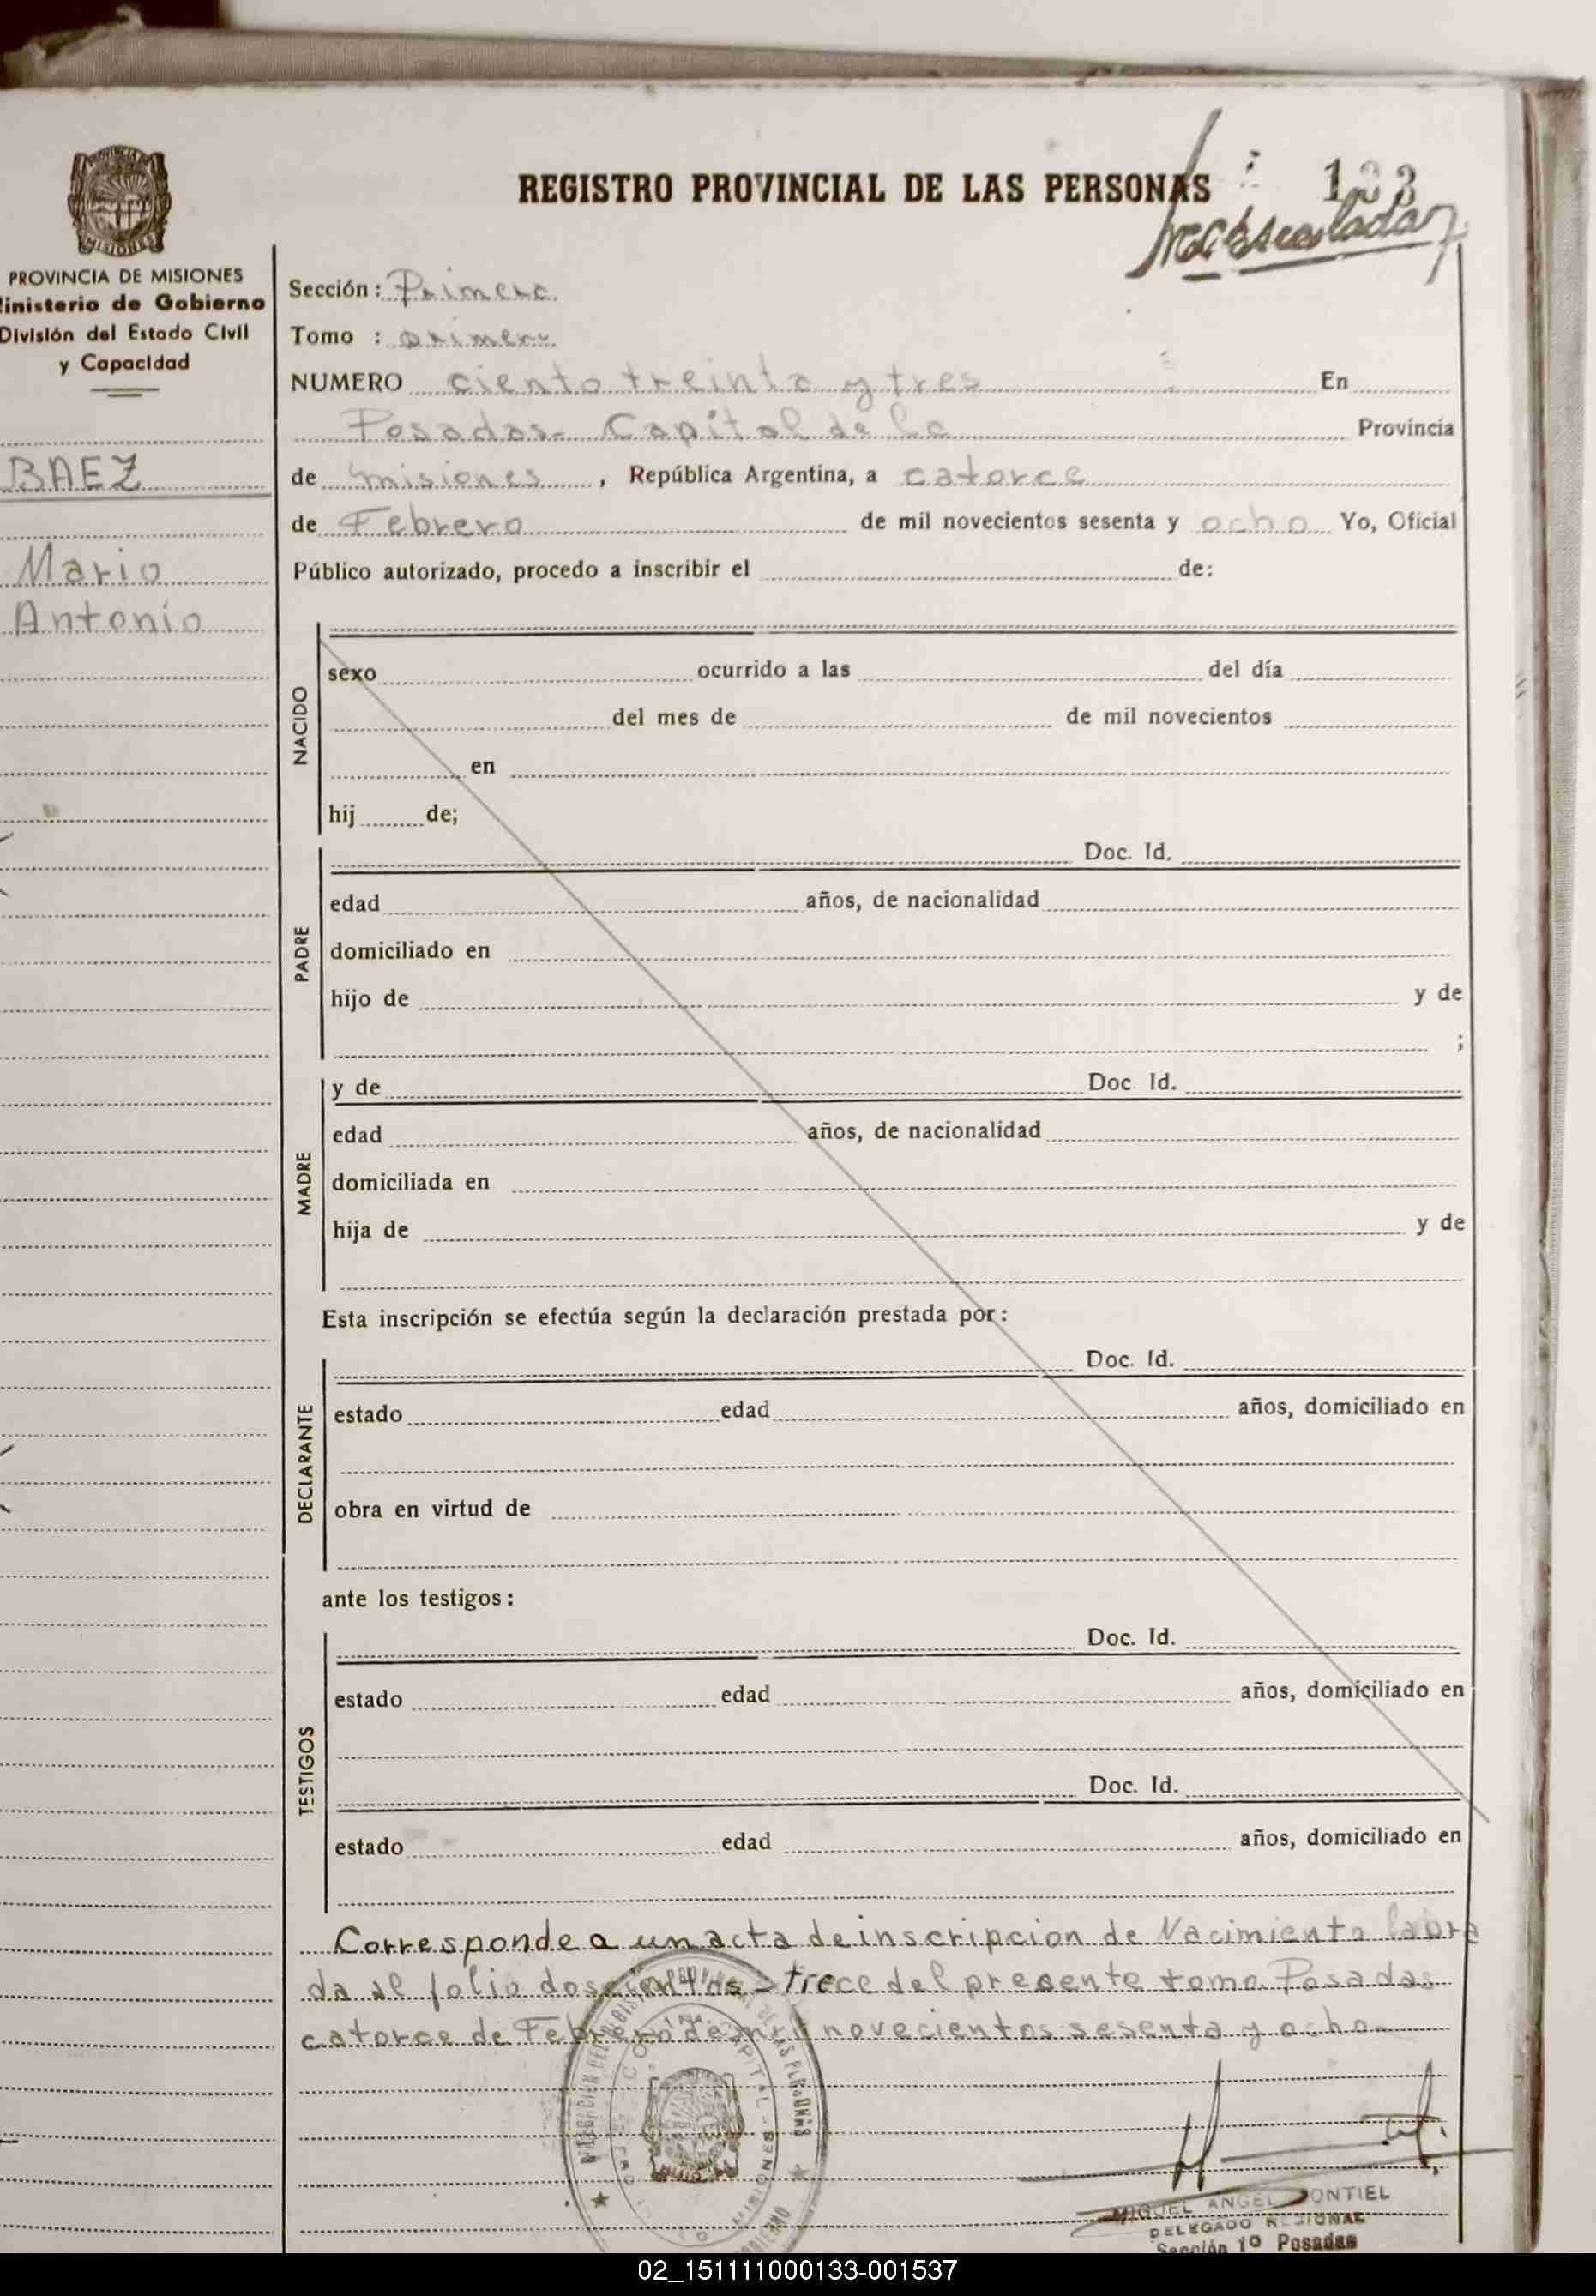 REGISTRO PROVINCIAL DE LAS PERSONAS
133
PROVINCIA DE MISIONES
Ministerio de Gobierno
División del Estado Civil
y Capacidad
BAEZ
Mario
Antonio
Sección: Primera
Tomo : primero
NUMERO ciento treinta y tres En
Posadas- Capital de la Provincia
de misiones, República Argentina, a catorce
de Febrero de mil novecientos sesenta y ocho Yo, Oficial
Público autorizado, procedo a inscribir el de:
NACIDO
sexo ocurrido a las del día
del mes de de mil novecientos
en
hij de;
PADRE
Doc. Id.
edad años, de nacionalidad
domiciliado en
hijo de y de
;
MADRE
y de Doc. Id.
edad años, de nacionalidad
domiciliada en
hija de y de
Esta inscripción se efectúa según la declaración prestada por:
DECLARANTE
Doc. Id.
estado edad años, domiciliado en
obra en virtud de
ante los testigos:
TESTIGOS
Doc. Id.
estado edad años, domiciliado en
Doc. Id.
estado edad años, domiciliado en
Corresponde a un acta de inscripcion de Nacimiento labra
da al folio doscientos trece del presente tomo. Posadas
catorce de Febrero de mil novecientos sesenta y ocho.
MIGUEL ANGEL
DELEGADO REGIONAL
Sección 1º Posadas
02_151111000133-001537